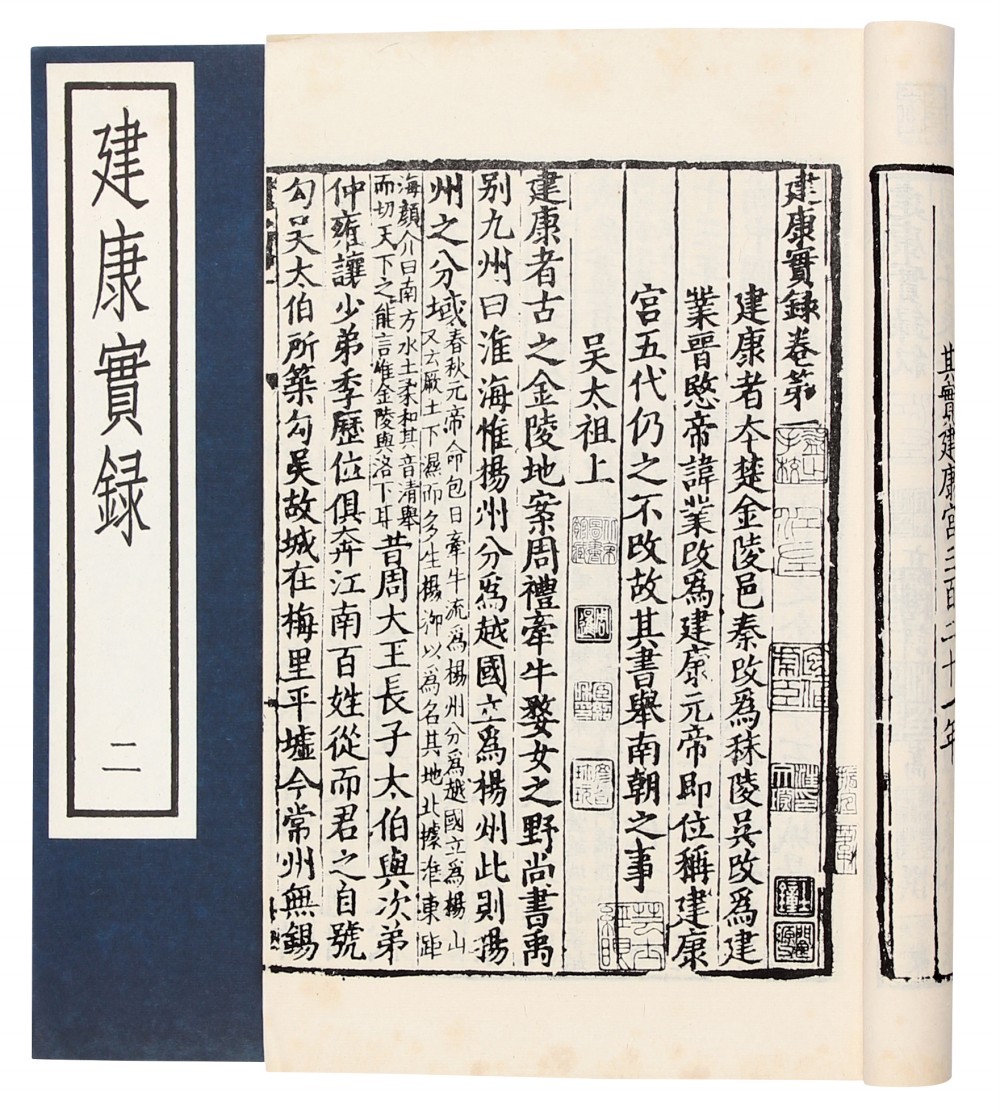 建康實録
二
建康宮三百二十一年
建康實録卷第一
建康者本楚金陵邑秦改爲秣陵吳改爲建
業晉愍帝諱業改爲建康元帝即位稱建康
宮五代仍之不改故其書舉南朝之事
吴太祖上
建康者古之金陵地案周禮牽牛婺女之野尚書禹
别九州曰淮海惟揚州分爲越國立爲楊州此則揚
州之分域春秋元帝命包曰牽牛流爲楊州分爲越國立爲楊山
又云厥土下濕而多生楊柳以爲名其地北據淮東距
海顔介曰南方水土柔和其音清舉
而切天下之能言惟金陵與洛下耳昔周大王長子太伯與次弟
仲雍讓少弟季歷位俱奔江南百姓從而君之自號
勾吴太伯所築勾吴故城在梅里平墟今常州無錫